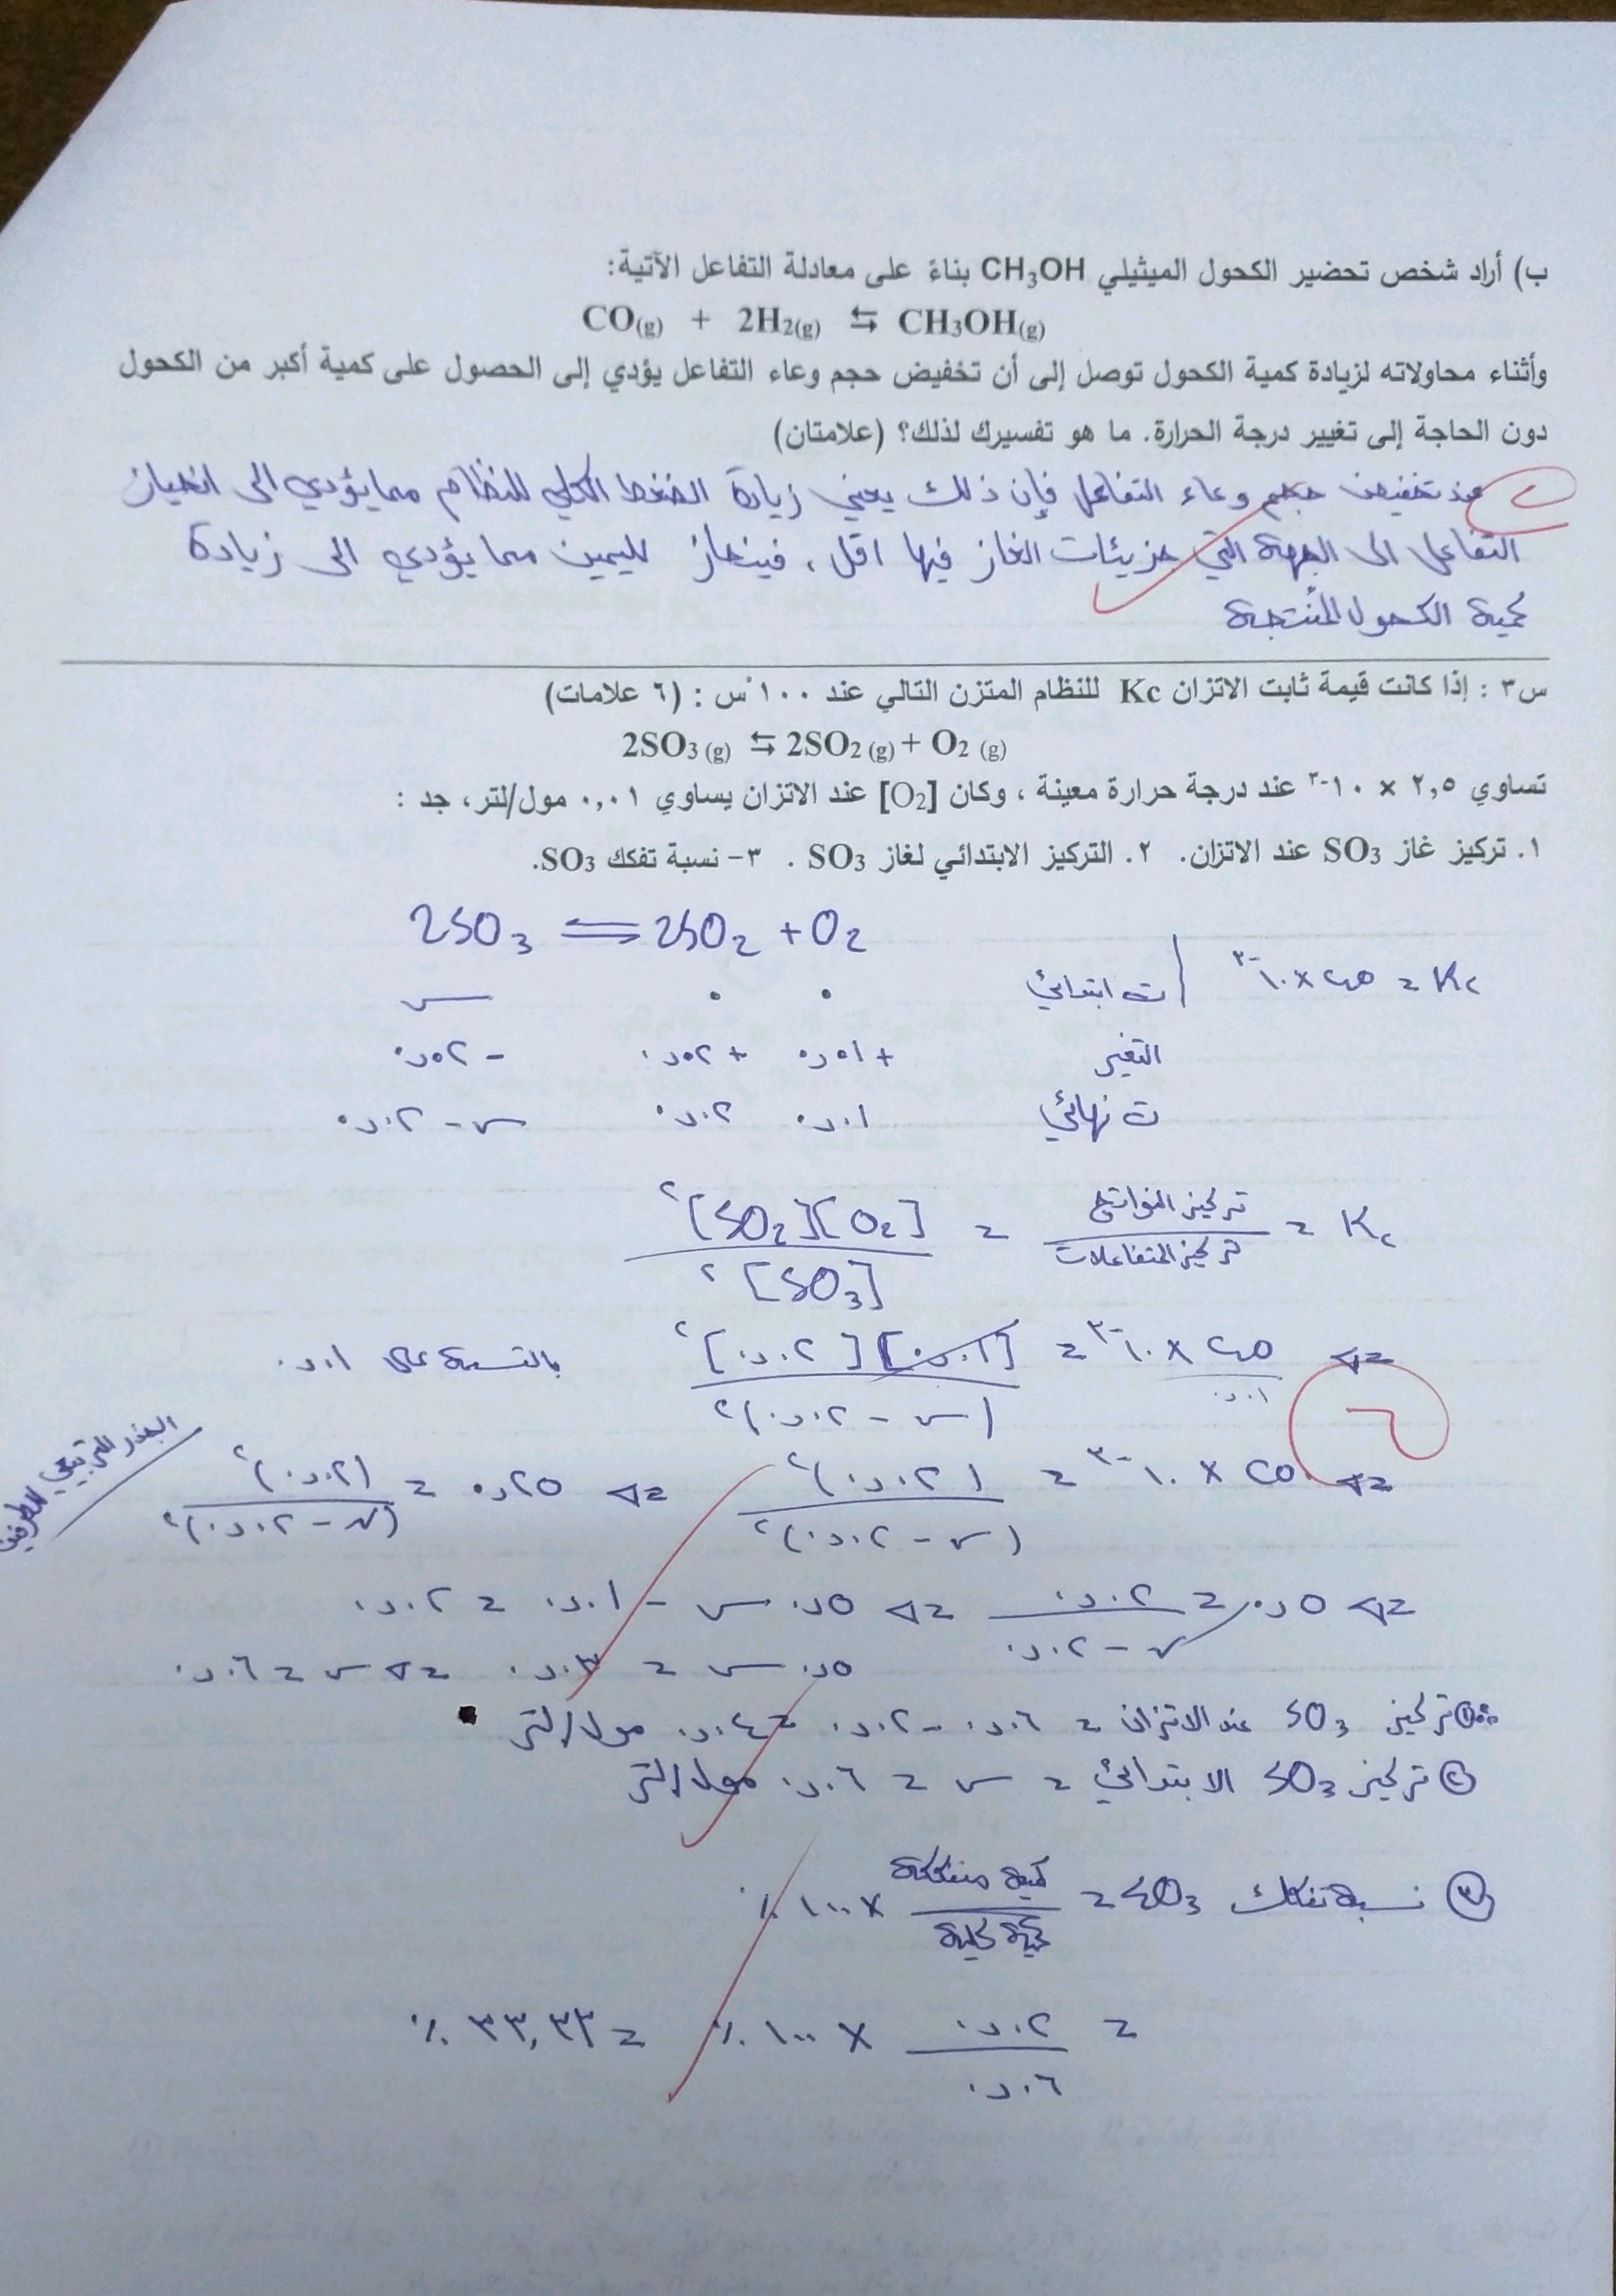 ب) أراد شخص تحضير الكحول الميثيلي CH3OH بناءً على معادلة التفاعل الآتية:
CO(g) + 2H2(g) ⇆ CH3OH(g)
وأثناء محاولاته لزيادة كمية الكحول توصل إلى أن تخفيض حجم وعاء التفاعل يؤدي إلى الحصول على كمية أكبر من الكحول
دون الحاجة إلى تغيير درجة الحرارة. ما هو تفسيرك لذلك؟ (علامتان)
عند تخفيض حجم وعاء التفاعل فإن ذلك يعني زيادة الضغط الكلي للنظام مما يؤدي الى انحياز
التفاعل الى الجهة التي جزيئات الغاز فيها اقل، فينحاز لليمين مما يؤدي الى زيادة
كمية الكحول المُنتجة
س٣ : إذا كانت قيمة ثابت الاتزان Kc للنظام المتزن التالي عند ١٠٠°س : (٦ علامات)
2SO3 (g) ⇆ 2SO2 (g) + O2 (g)
تساوي ٢,٥ × ١٠-٣ عند درجة حرارة معينة ، وكان [O2] عند الاتزان يساوي ٠,٠١ مول/لتر، جد :
١. تركيز غاز SO3 عند الاتزان. ٢. التركيز الابتدائي لغاز SO3 . ٣- نسبة تفكك SO3.
2SO3 ⇌ 2SO2 + O2
Kc = ٢,٥ × ١٠-٣
ت ابتدائي ٠ ٠ س
التغير +٠,٠١ +٠,٠٢ -٠,٠٢
ت نهائي ٠,٠١ ٠,٠٢ س - ٠,٠٢
Kc = تركيز النواتج / تركيز المتفاعلات = [O2][SO2]٢ / [SO3]٢
⇐ ٢,٥ × ١٠-٣ / ٠,٠١ = [٠,٠١][٠,٠٢]٢ / (س - ٠,٠٢)٢ بالقسمة على ٠,٠١
⇐ ٢٥٠ × ١٠-٣ = (٠,٠٢)٢ / (س - ٠,٠٢)٢ ⇐ ٠,٢٥ = (٠,٠٢)٢ / (س - ٠,٠٢)٢ الجذر التربيعي للطرفين
⇐ ٠,٥ = ٠,٠٢ / س - ٠,٠٢ ⇐ ٠,٥ س - ٠,٠١ = ٠,٠٢
٠,٥ س = ٠,٠٣ ⇐ س = ٠,٠٦
∴ ① تركيز SO3 عند الاتزان = ٠,٠٦ - ٠,٠٢ = ٠,٠٤ مول/لتر
② تركيز SO3 الابتدائي = س = ٠,٠٦ مول/لتر
③ نسبة تفكك SO3 = كمية متفككة / كمية كلية × ١٠٠٪
= ٠,٠٢ / ٠,٠٦ × ١٠٠٪ = ٣٣,٣٣٪